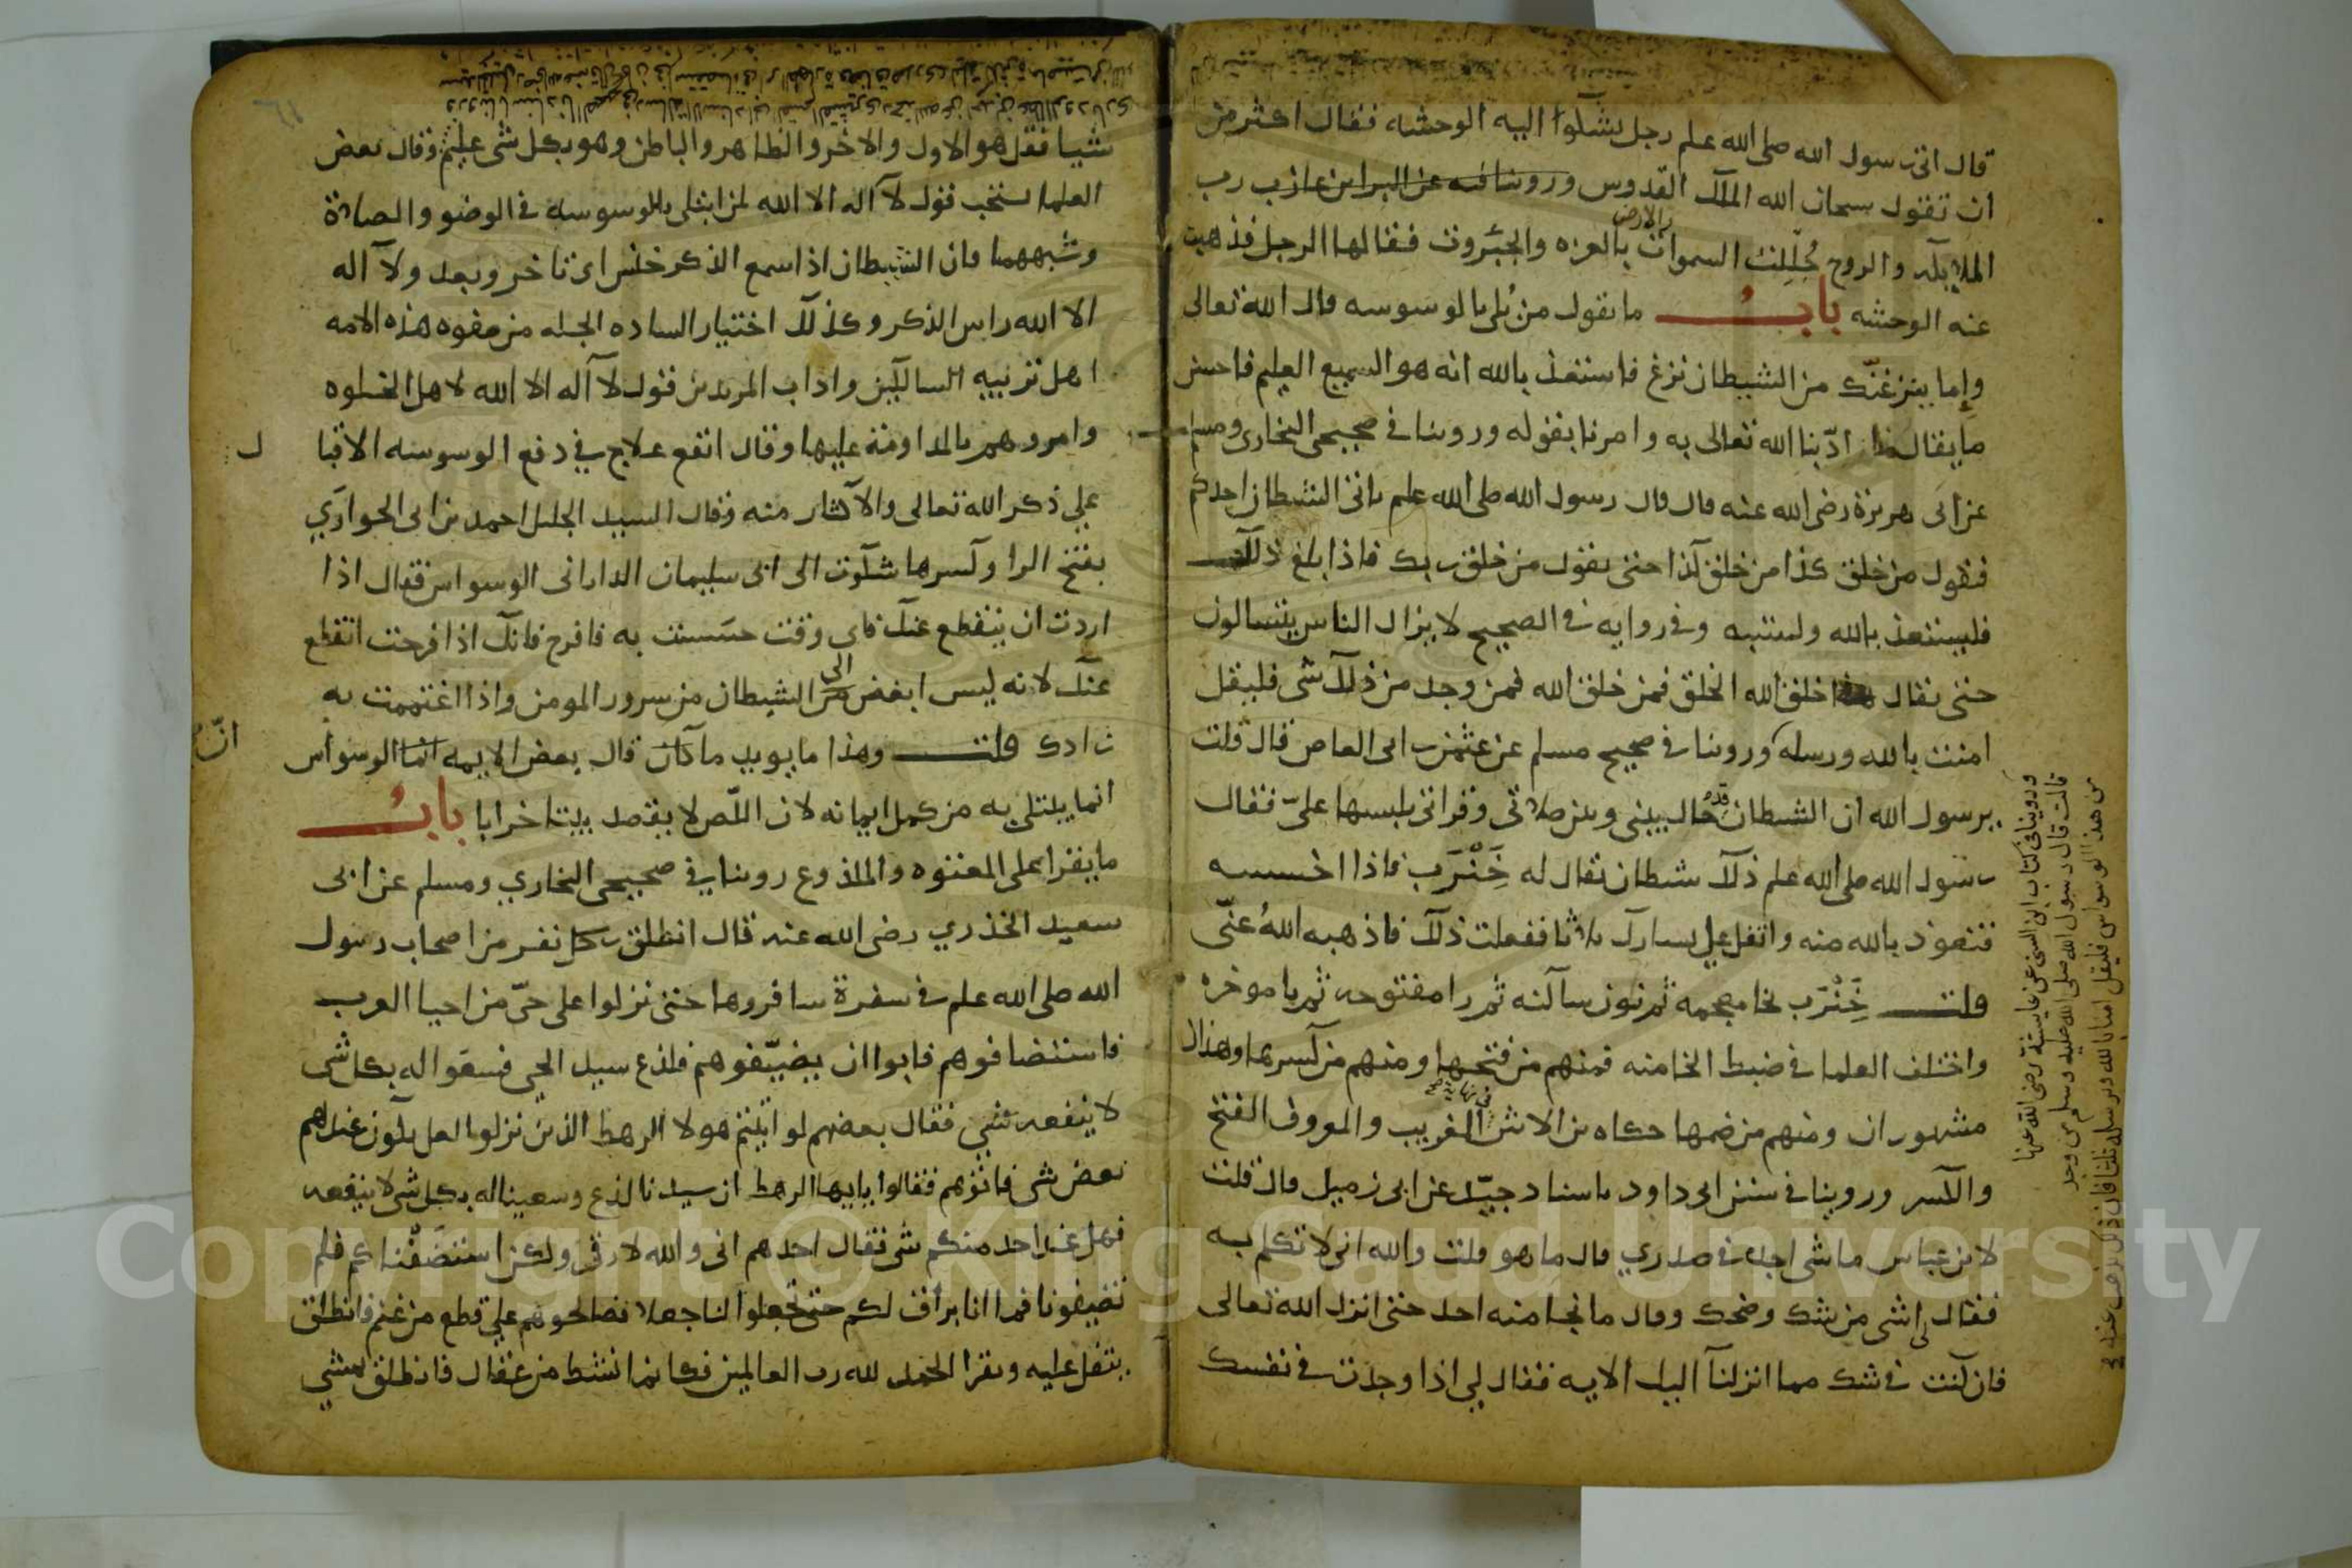 قال اتى رسول الله صلى الله علم رجل يشكوا اليه الوحشه فقال اكثر من
ان تقول سبحان الله الملك القدوس رب
الملايكه والروح جُلِّلت السموات والارض بالعزه والجبروت فقالها الرجل فذهبت
عنه الوحشه بابُ ما يقول من بُلي بالوسوسه قال الله تعالى
وإما ينزغنّك من الشيطان نزغ فاستعذ بالله انه هو السميع العليم فاحسن
ما يقال ادّبنا الله تعالى به وامرنا بقوله وروينا في صحيحي البخاري ومسلم
عن ابى هريرة رضى الله عنه قال قال رسول الله صلى الله علم ياتي الشيطان احدكم
فيقول من خلق كذا من خلق كذا حتى يقول من خلق ربك فاذا بلغ ذلك
فليستعذ بالله ولينته وفي روايه في الصحيح لا يزال الناس يتسالون
حتى يقال خلق الله الخلق فمن خلق الله فمن وجد من ذلك شى فليقل
امنت بالله ورسله وروينا في صحيح مسلم عن عثمن بن ابى العاص قال قلت
يرسول الله ان الشيطان قد حال بيني وبين صلاتي وقراتي يلبسها عليّ فقال
رسول الله صلى الله علم ذلك شيطان يقال له خَِنْزَب فاذا احسسه
فتعوذ بالله منه واتفل على يسارك ثلاثا ففعلت ذلك فاذهبه اللهُ عنّى
قلت خَِنْزَب بخا معجمه ثم نون ساكنه ثم زا مفتوحه ثم با موخره
واختلف العلما في ضبط الخا منه فمنهم من فتحها ومنهم من كسرها وهذان
مشهوران ومنهم من ضمها حكاه بن الاثير في نهاية الغريب والمعروف الفتح
والكسر وروينا في سنن ابى داود باسناد جيّد عن ابى زميل قال قلت
لابن عباس ما شى اجده في صدري قال ما هو قلت والله انى لا تكلم به
فقال لى اشى من شك وضحك وقال ما نجا منه احد حتى انزل الله تعالى
فان كنت في شك مما انزلنا اليك الايه فقال لي اذا وجدت في نفسك
وروينا في كتاب ابن السنى عن عايشة رضى الله عنها
قالت قال رسول الله صلى الله عليه وسلم من وجد
من هذا الوسواس فليقل امنا بالله وبرسله ثلثا فان ذلك يذهب عنه
شيا فقل هو الاول والاخر والظاهر والباطن وهو بكل شى عليم وقال بعض
العلما يستحب قول لا اله الا الله لمن ابتلى بالوسوسه في الوضو والصلاة
وشبههما فان الشيطان اذا سمع الذكر خنس اى تاخر وبعد ولا اله
الا الله راس الذكر وكذلك اختيار الساده الجله من صفوه هذه الامه
اهل تربيه السالكين واداب المريدين قول لا اله الا الله لاهل الخلوه
وامروهم بالمداومة عليها وقال انفع علاج في دفع الوسوسه الاقبا
ل
على ذكر الله تعالى والاكثار منه وقال السيد الجليل احمد بن ابى الحواري
بفتح الرا وكسرها شكوت الى ابى سليمان الدارانى الوسواس فقال اذا
اردت ان ينقطع عنك فاى وقت حسست به فافرح فانك اذا فرحت انقطع
عنك لانه ليس ابغض الى الشيطان من سرور المومن واذا اغتممت به
زادك قلت وهذا ما يويد ما كان قال بعض الايمه الوسواس
انّ
انما يبتلى به من كمل ايمانه لان اللّص لا يقصد بيتا خرابا بابُ
ما يقرا على المعتوه والملذوع روينا في صحيحى البخاري ومسلم عن ابى
سعيد الخذري رضى الله عنه قال انطلق نفر من اصحاب رسول
الله صلى الله علم في سفرة سافروها حتى نزلوا على حىّ من احيا العرب
فاستضافوهم فابوا ان يضيّفوهم فلذع سيد الحى فسعوا له بكل شى
لا ينفعه شي فقال بعضهم لو اتيتم هولا الرهط الذين نزلوا لعل يكون عندهم
بعض شى فاتوهم فقالوا يايها الرهط ان سيدنا لذع وسعينا له بكل شى لا ينفعه
فهل عند احد منكم شى فقال احدهم انى والله لارقى ولكن استضفناكم فلم
تضيفونا فما انا براق لكم حتى تجعلوا لنا جعلا فصالحوهم على قطع من غنم فانطلق
يتفل عليه ويقرا الحمد لله رب العالمين فكانما نشط من عقال فانطلق يمشي
Copyright © King Saud University